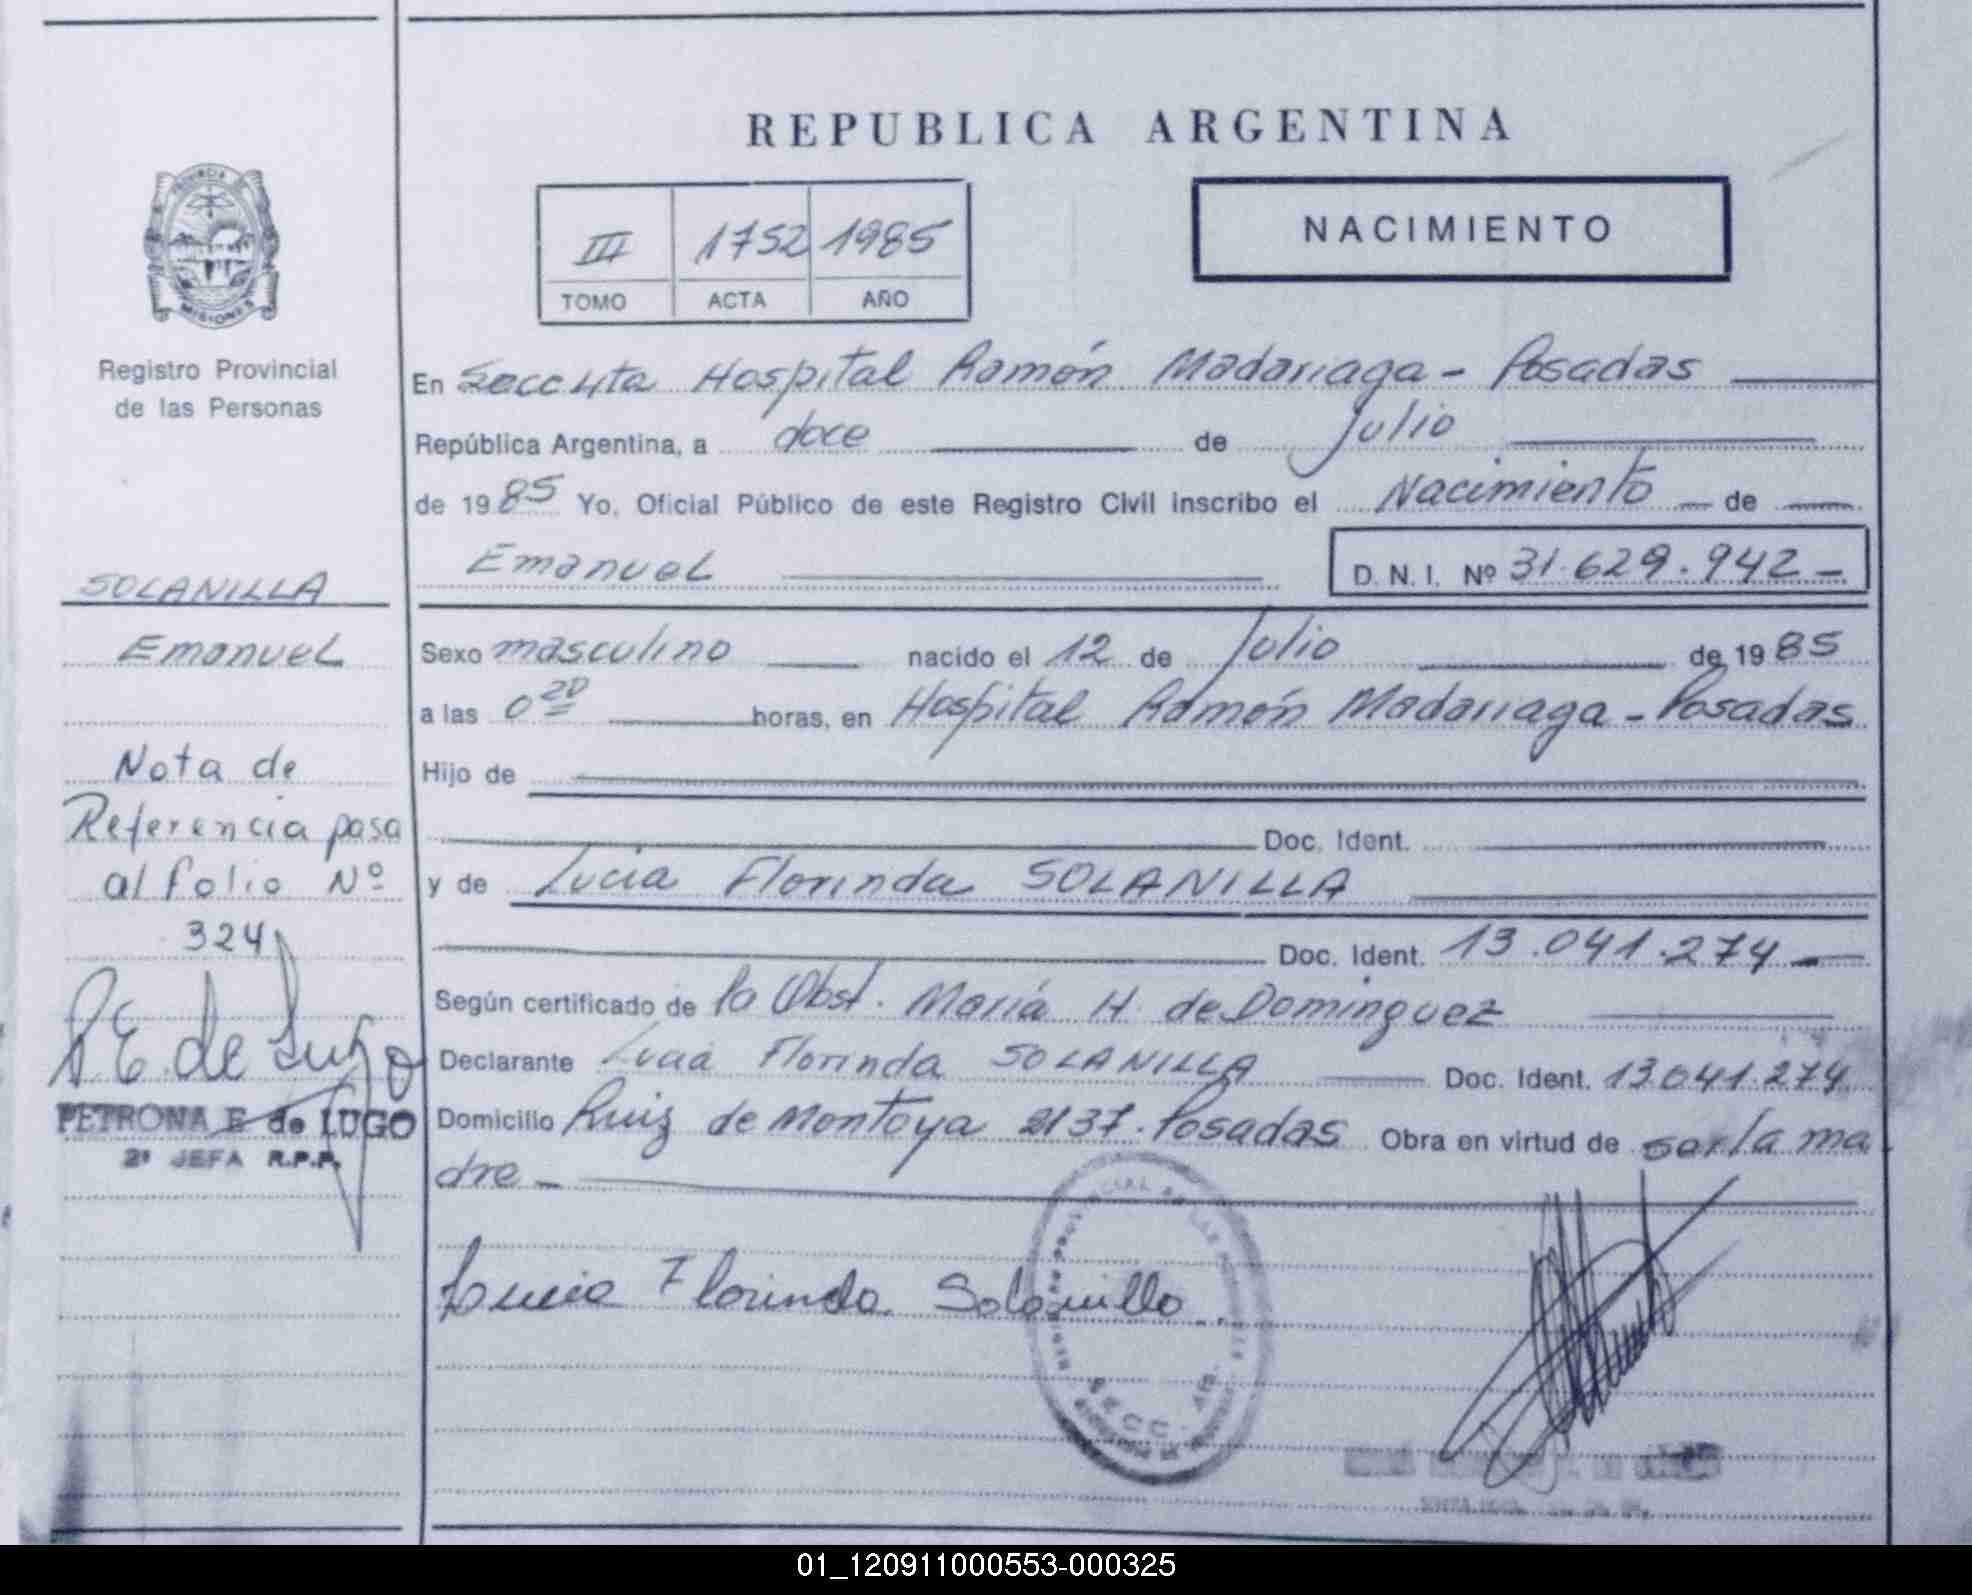 REPUBLICA ARGENTINA
PROVINCIA DE
MISIONES
Registro Provincial
de las Personas
III 1752 1985
TOMO ACTA AÑO
NACIMIENTO
En Secc 4ta Hospital Ramón Madariaga - Posadas
República Argentina, a doce de Julio
de 1985 Yo, Oficial Público de este Registro Civil inscribo el Nacimiento de
Emanuel D. N. I. Nº 31.629.942 -
SOLANILLA
Emanuel
Nota de
Referencia pasa
al folio Nº
324
P E de Lugo
PETRONA E de LUGO
2ª JEFA R.P.P.
Sexo masculino nacido el 12 de Julio de 1985
a las 0 20 horas, en Hospital Ramón Madariaga - Posadas
Hijo de
Doc. Ident.
y de Lucia Florinda SOLANILLA
Doc. Ident. 13.041.274 -
Según certificado de la Obst. María H. de Dominguez
Declarante Lucia Florinda SOLANILLA Doc. Ident. 13.041.274
Domicilio Ruiz de Montoya 2137. Posadas Obra en virtud de ser la ma
dre -
Lucia Florinda Solanilla
SECC. 4ta.
01_120911000553-000325